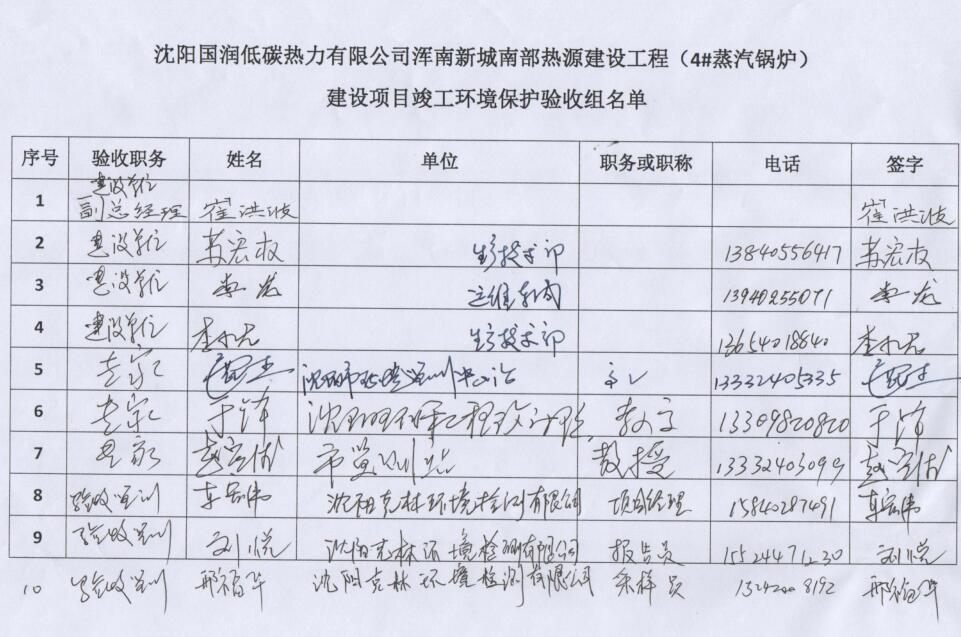 沈阳国润低碳热力有限公司浑南新城南部热源建设工程（4#蒸汽锅炉）
建设项目竣工环境保护验收组名单
序号 验收职务 姓名 单位 职务或职称 电话 签字
1 建设单位 副总经理 崔洪波 崔洪波
2 建设单位 苏宏权 生产技术部 13840556417 苏宏权
3 建设单位 李龙 13940255071 李龙
4 建设单位 生产技术部 13654018840
5 专家 13332405335
6 专家 于涛 13309820820 于涛
7 专家 教授 13332403099
8 验收监测 车宏伟 沈阳克林环境检测有限公司 项目经理 15840287491 车宏伟
9 验收监测 刘悦 沈阳克林环境检测有限公司 报告员 15524471230 刘悦
10 验收监测 邢福华 沈阳克林环境检测有限公司 采样员 邢福华